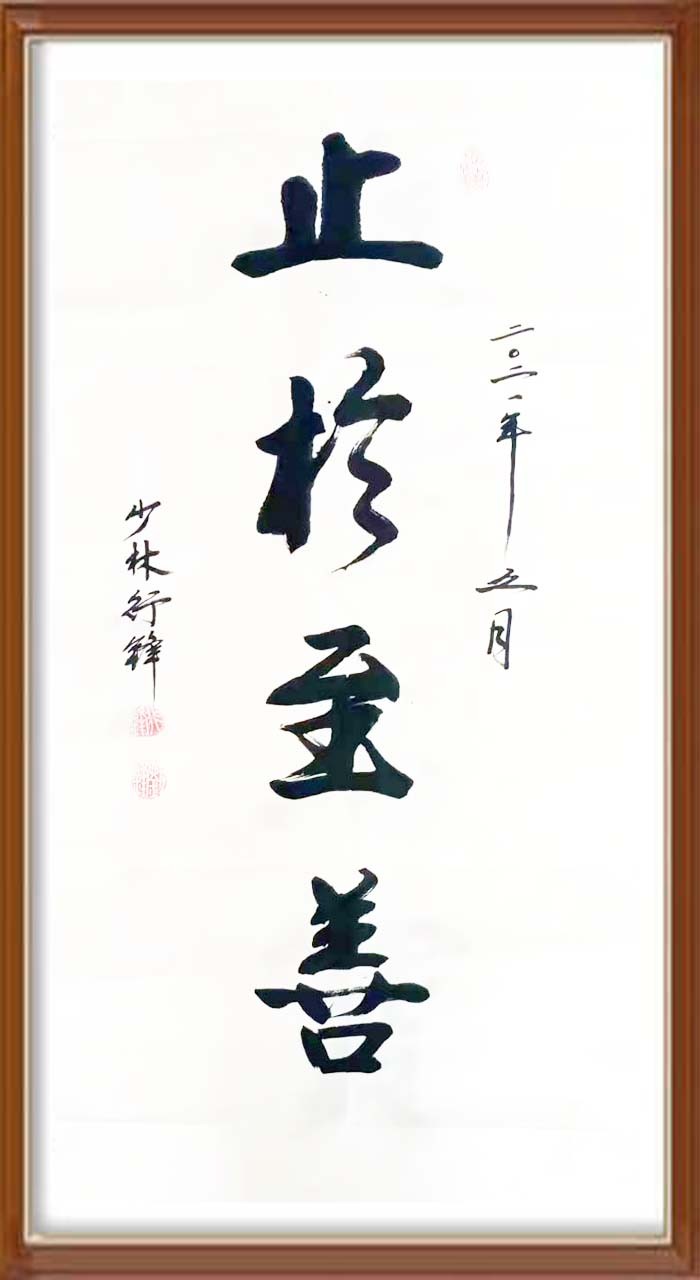 二〇二一年五月
止於至善
少林行锋